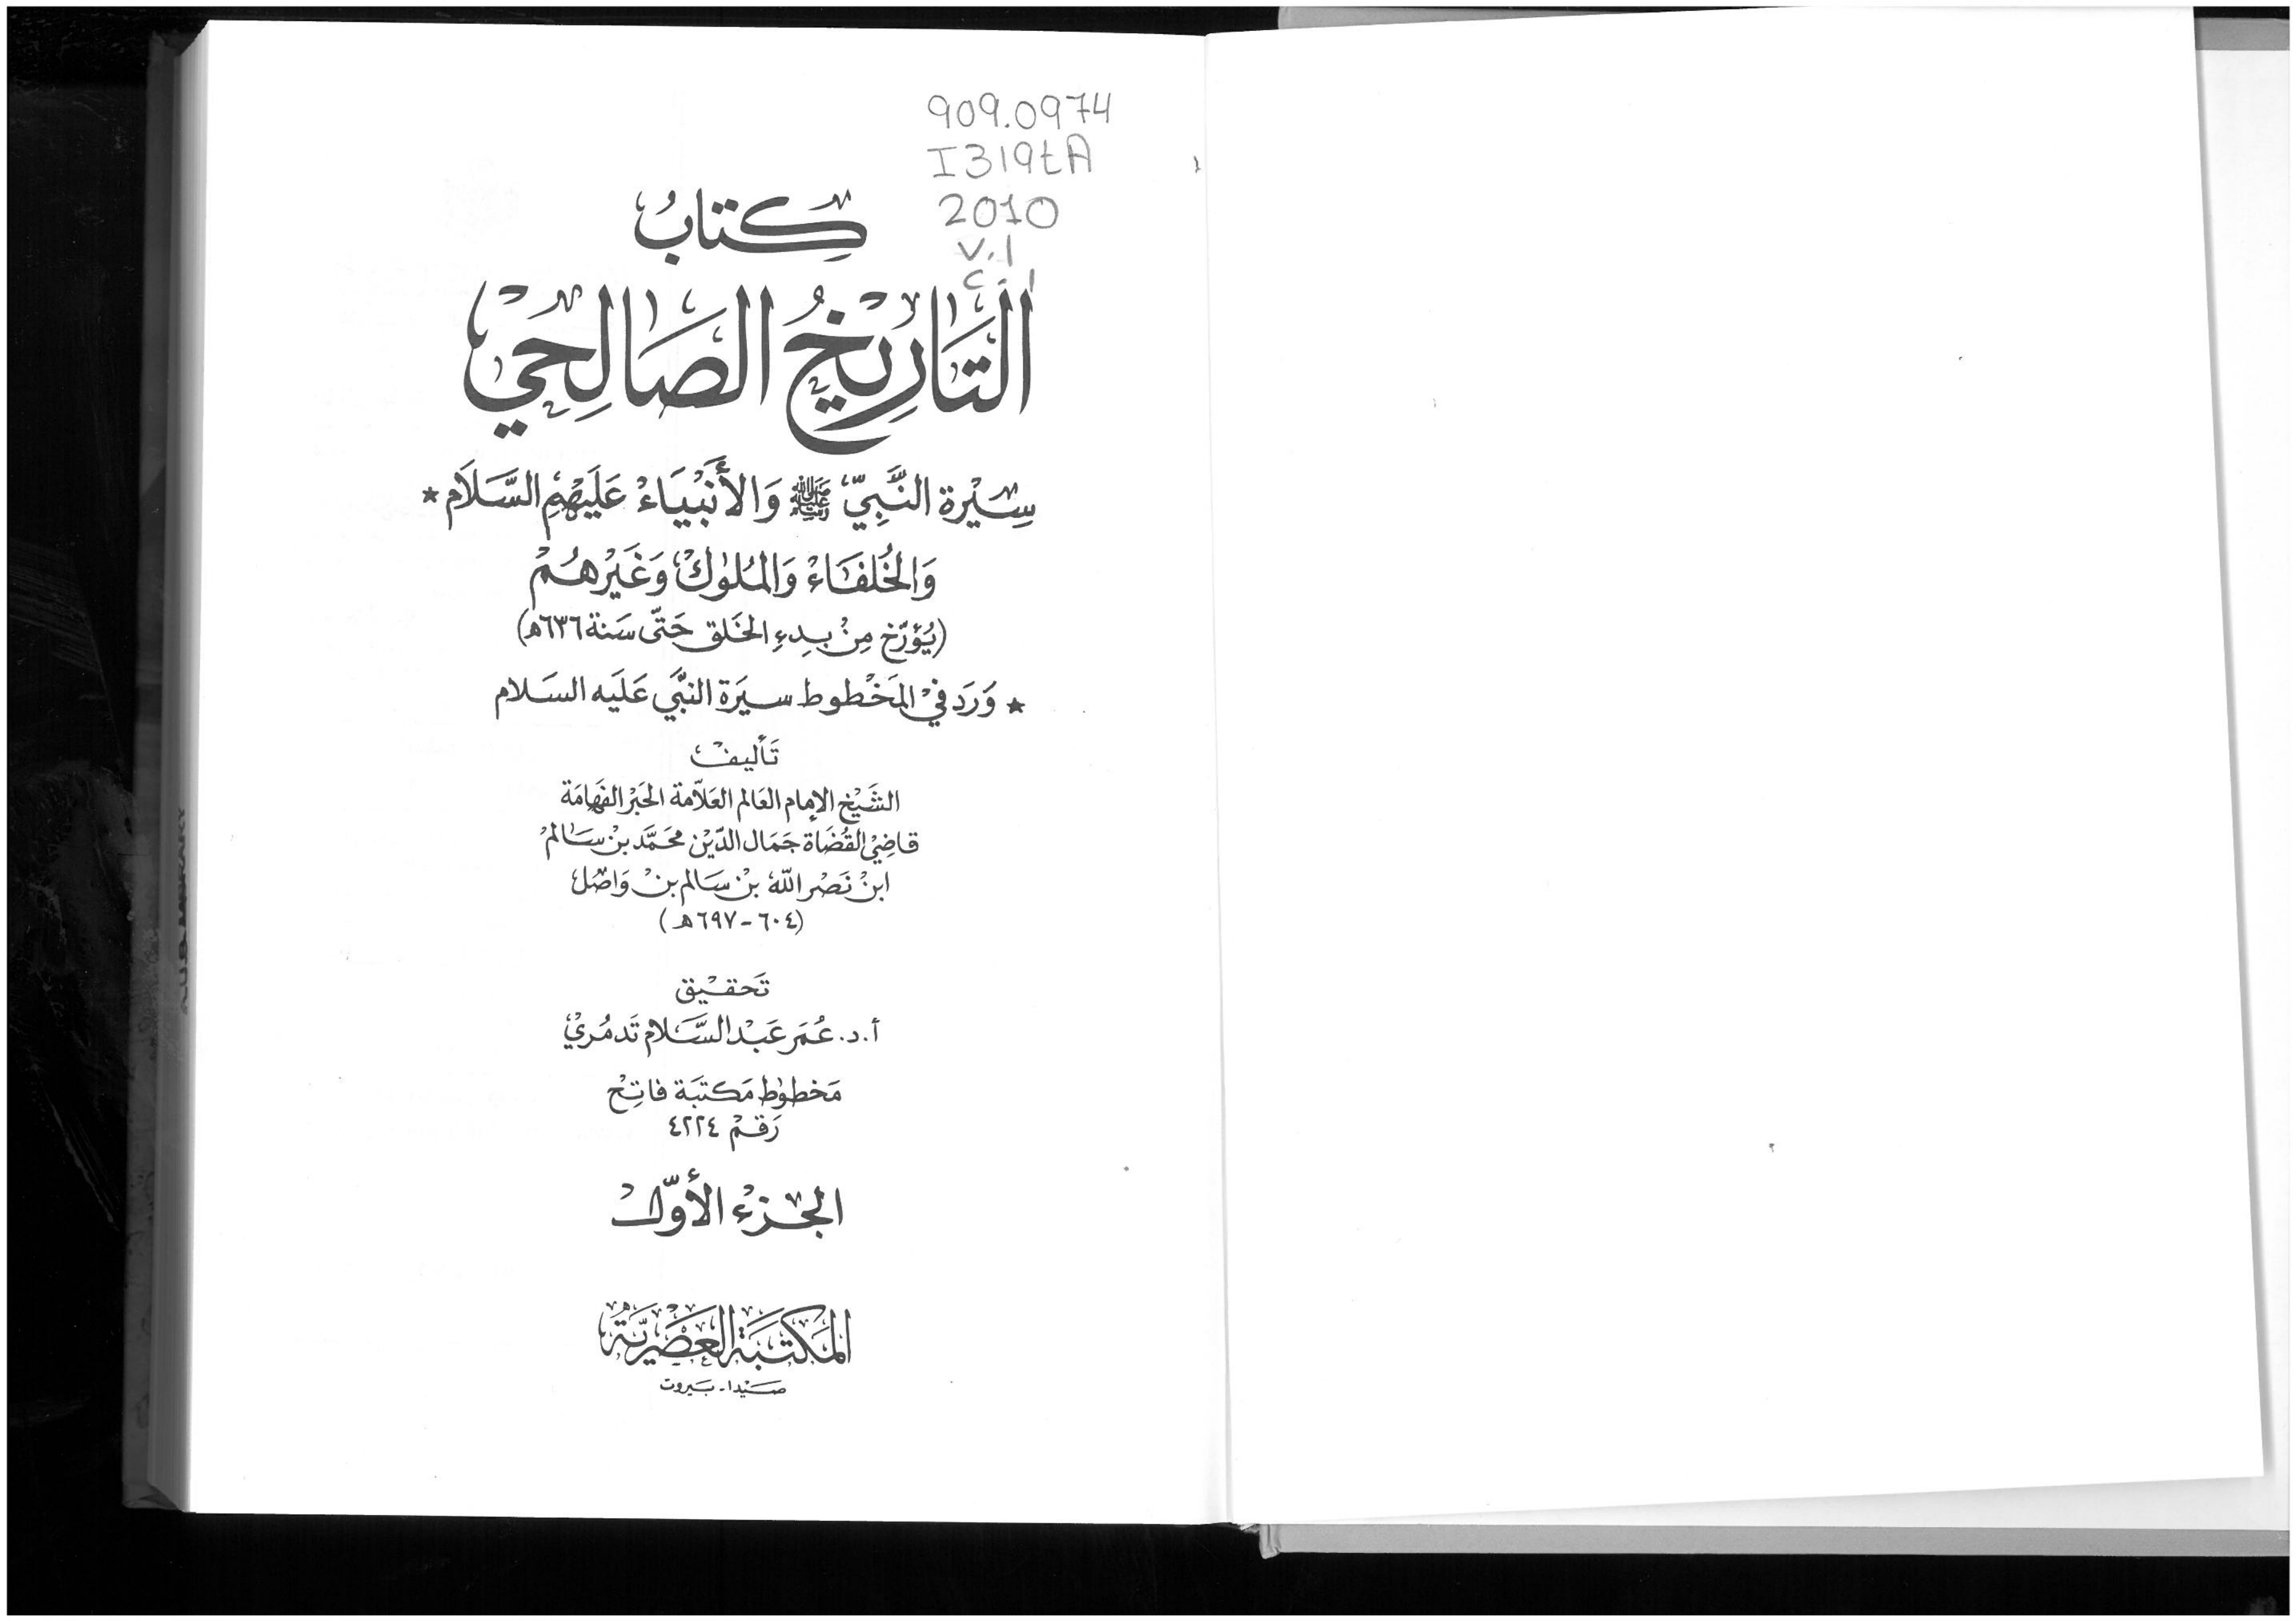 909.0974
I319tA
2010
v.1
c.1
كتابُ
التَّارِيخُ الصَّالِحِي
سِيْرة النَّبِيّ ﷺ وَالأَنْبيَاءْ عَلَيْهِمِ السَّلَام *
وَالخُلفَاءْ وَالمُلوكْ وَغَيْرهُمْ
(يُؤرّخ مِنْ بِدءِ الخَلق حَتّى سَنة ٦٣٦ه)
* وَرَد فيْ المَخْطوط سيَرة النبَّي عَليَه السَلام
تَأليفْ
الشَيْخ الإمام العَالم العَلاّمة الحَبْر الفَهامَة
قاضِيْ القُضَاة جَمَال الدّيْن محَمَّد بنْ سَالمْ
ابنْ نَصْر اللّه بنْ سَالم بنْ وَاصْل
(٦٠٤ - ٦٩٧ه)
تَحقيْق
أ.د. عُمَر عَبْد السَّلام تَدمُريْ
مَخطوُط مَكتبَة فاتِحْ
رَقمْ ٤٢٢٤
الجزءْ الأوّلْ
المَكتَبَة العَصْريَّة
صَيْدا - بَيروت
AUB LIBRARY